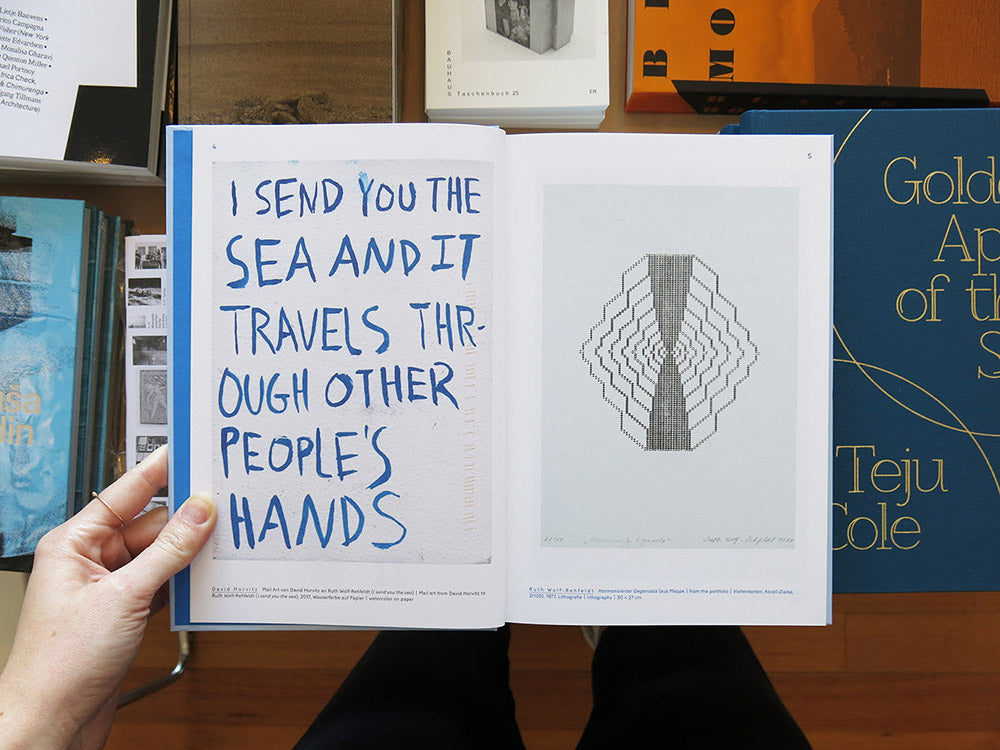 Lietje Bauwens •
rico Campagna
Fisher (New York
ette Edvardsen •
Monalisa Gharavi
Quenton Miller •
ael Portnoy
frica Check,
& Chimurenga •
gang Tillmans
Architecture)
BAUHAUS
Taschenbuch 20
EN
B
MO
4
I SEND YOU THE
SEA AND IT
TRAVELS THR-
OUGH OTHER
PEOPLE'S
HANDS
David Horvitz Mail Art von David Horvitz an Ruth Wolf-Rehfeldt (I send you the sea) | Mail art from David Horvitz to
Ruth Wolf-Rehfeldt (I send you the sea), 2017, Wasserfarbe auf Papier | watercolor on paper
5
Ruth Wolf-Rehfeldt Harmonisierter Gegensatz (aus Mappe | from the portfolio | Visitenkarten, Abzeil-Zielke,
1977, Lithografie | lithography | 30 × 27 cm
Golde
Ap
of th
S
Teju
Cole